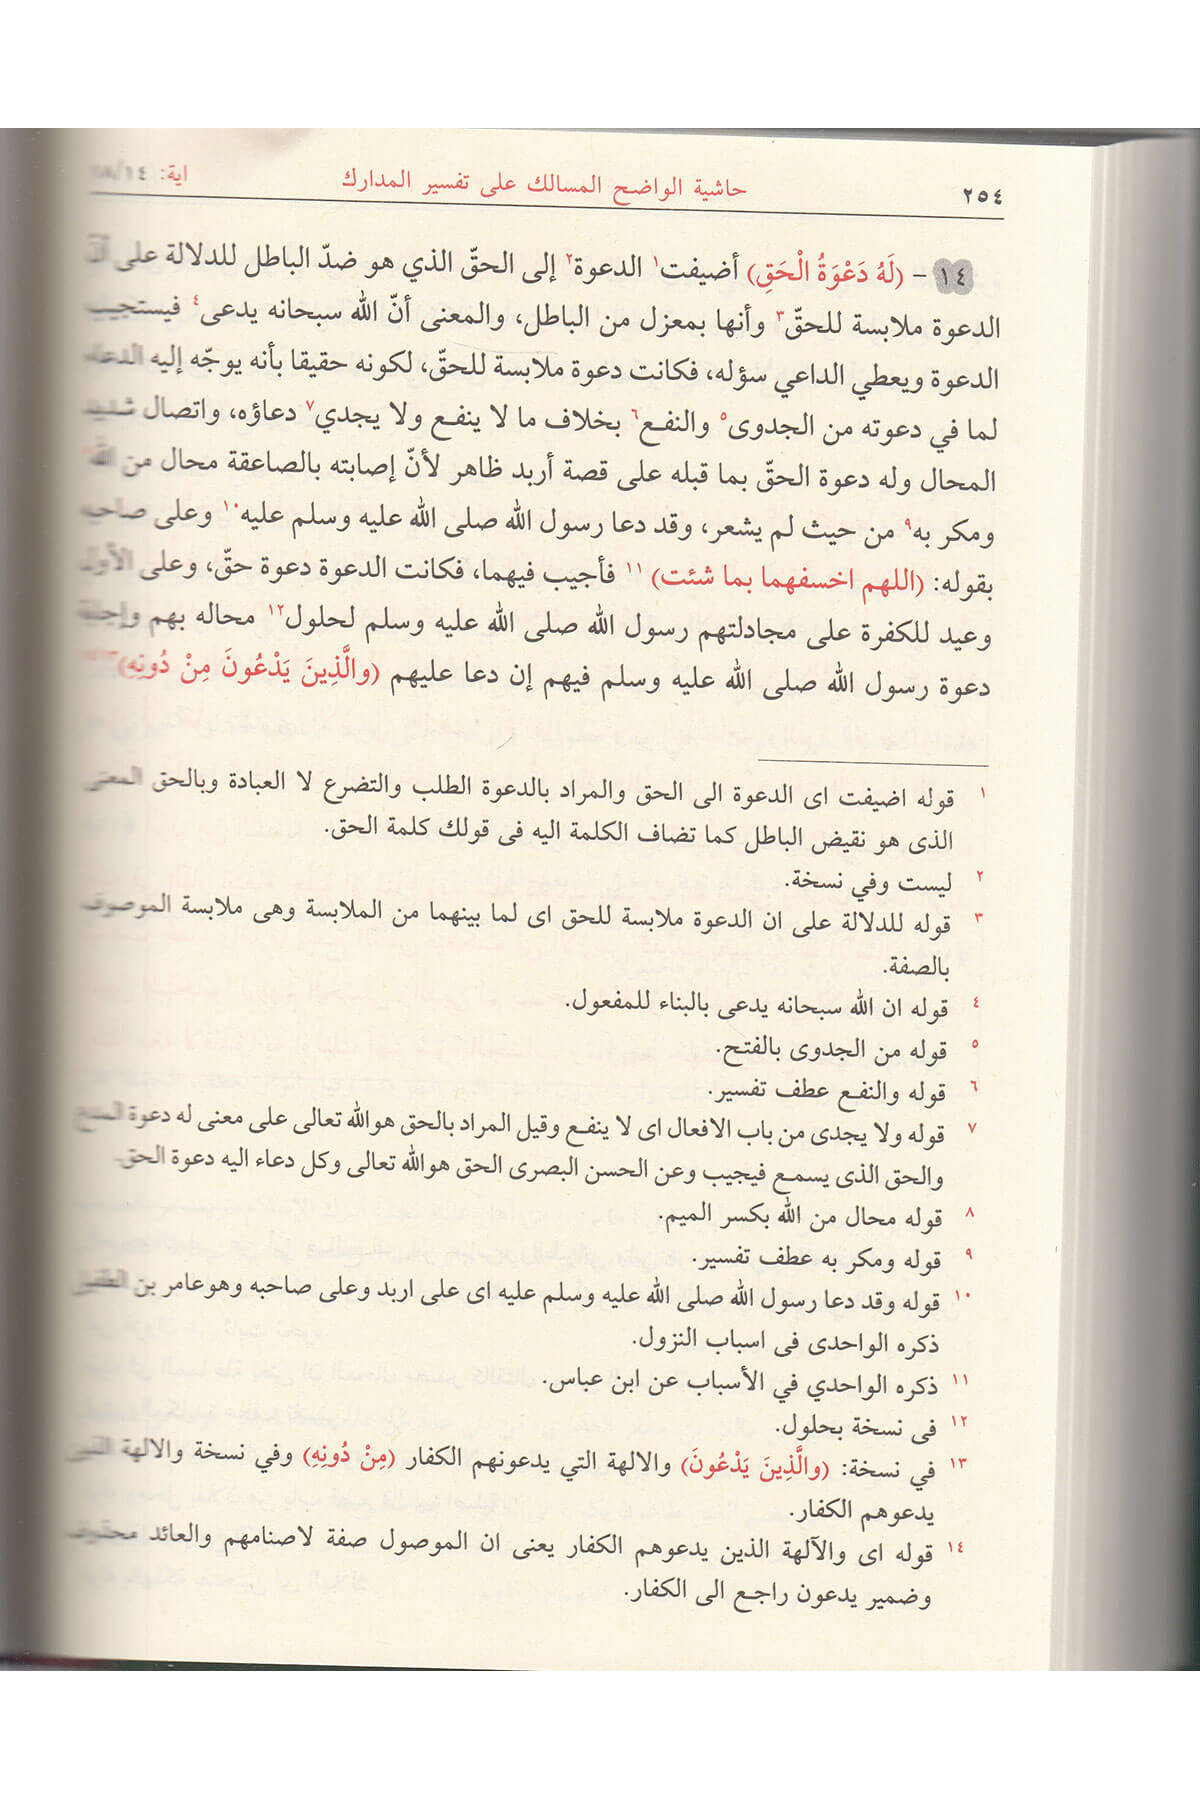 ٢٥٤ حاشية الواضح المسالك على تفسير المدارك اية:
١٤ - (لَهُ دَعْوَةُ الْحَقِ) أضيفت١ الدعوة٢ إلى الحقّ الذي هو ضدّ الباطل للدلالة على
الدعوة ملابسة للحقّ٣ وأنها بمعزل من الباطل، والمعنى أنّ الله سبحانه يدعى٤ فيستجيب
الدعوة ويعطي الداعي سؤله، فكانت دعوة ملابسة للحقّ، لكونه حقيقا بأنه يوجّه إليه الدعاء
لما في دعوته من الجدوى٥ والنفع٦ بخلاف ما لا ينفع ولا يجدي٧ دعاؤه، واتصال شديد
المحال وله دعوة الحقّ بما قبله على قصة أربد ظاهر لأنّ إصابته بالصاعقة محال من الله
ومكر به٩ من حيث لم يشعر، وقد دعا رسول الله صلى الله عليه وسلم عليه١٠ وعلى صاحبه
بقوله: (اللهم اخسفهما بما شئت)١١ فأجيب فيهما، فكانت الدعوة دعوة حقّ، وعلى الأول
وعيد للكفرة على مجادلتهم رسول الله صلى الله عليه وسلم لحلول١٢ محاله بهم وإجابة
دعوة رسول الله صلى الله عليه وسلم فيهم إن دعا عليهم (والَّذِينَ يَدْعُونَ مِنْ دُونِهِ)
١ قوله اضيفت اى الدعوة الى الحق والمراد بالدعوة الطلب والتضرع لا العبادة وبالحق المعنى
الذى هو نقيض الباطل كما تضاف الكلمة اليه فى قولك كلمة الحق.
٢ ليست وفي نسخة.
٣ قوله للدلالة على ان الدعوة ملابسة للحق اى لما بينهما من الملابسة وهى ملابسة الموصوف
بالصفة.
٤ قوله ان الله سبحانه يدعى بالبناء للمفعول.
٥ قوله من الجدوى بالفتح.
٦ قوله والنفع عطف تفسير.
٧ قوله ولا يجدى من باب الافعال اى لا ينفع وقيل المراد بالحق هوالله تعالى على معنى له دعوة
والحق الذى يسمع فيجيب وعن الحسن البصرى الحق هوالله تعالى وكل دعاء اليه دعوة الحق.
٨ قوله محال من الله بكسر الميم.
٩ قوله ومكر به عطف تفسير.
١٠ قوله وقد دعا رسول الله صلى الله عليه وسلم عليه اى على اربد وعلى صاحبه وهوعامر بن الطفيل
ذكره الواحدى فى اسباب النزول.
١١ ذكره الواحدي في الأسباب عن ابن عباس.
١٢ فى نسخة بحلول.
١٣ في نسخة: (والَّذِينَ يَدْعُونَ) والالهة التي يدعونهم الكفار (مِنْ دُونِهِ) وفي نسخة والالهة التي
يدعوهم الكفار.
١٤ قوله اى والآلهة الذين يدعوهم الكفار يعنى ان الموصول صفة لاصنامهم والعائد محذوف
وضمير يدعون راجع الى الكفار.